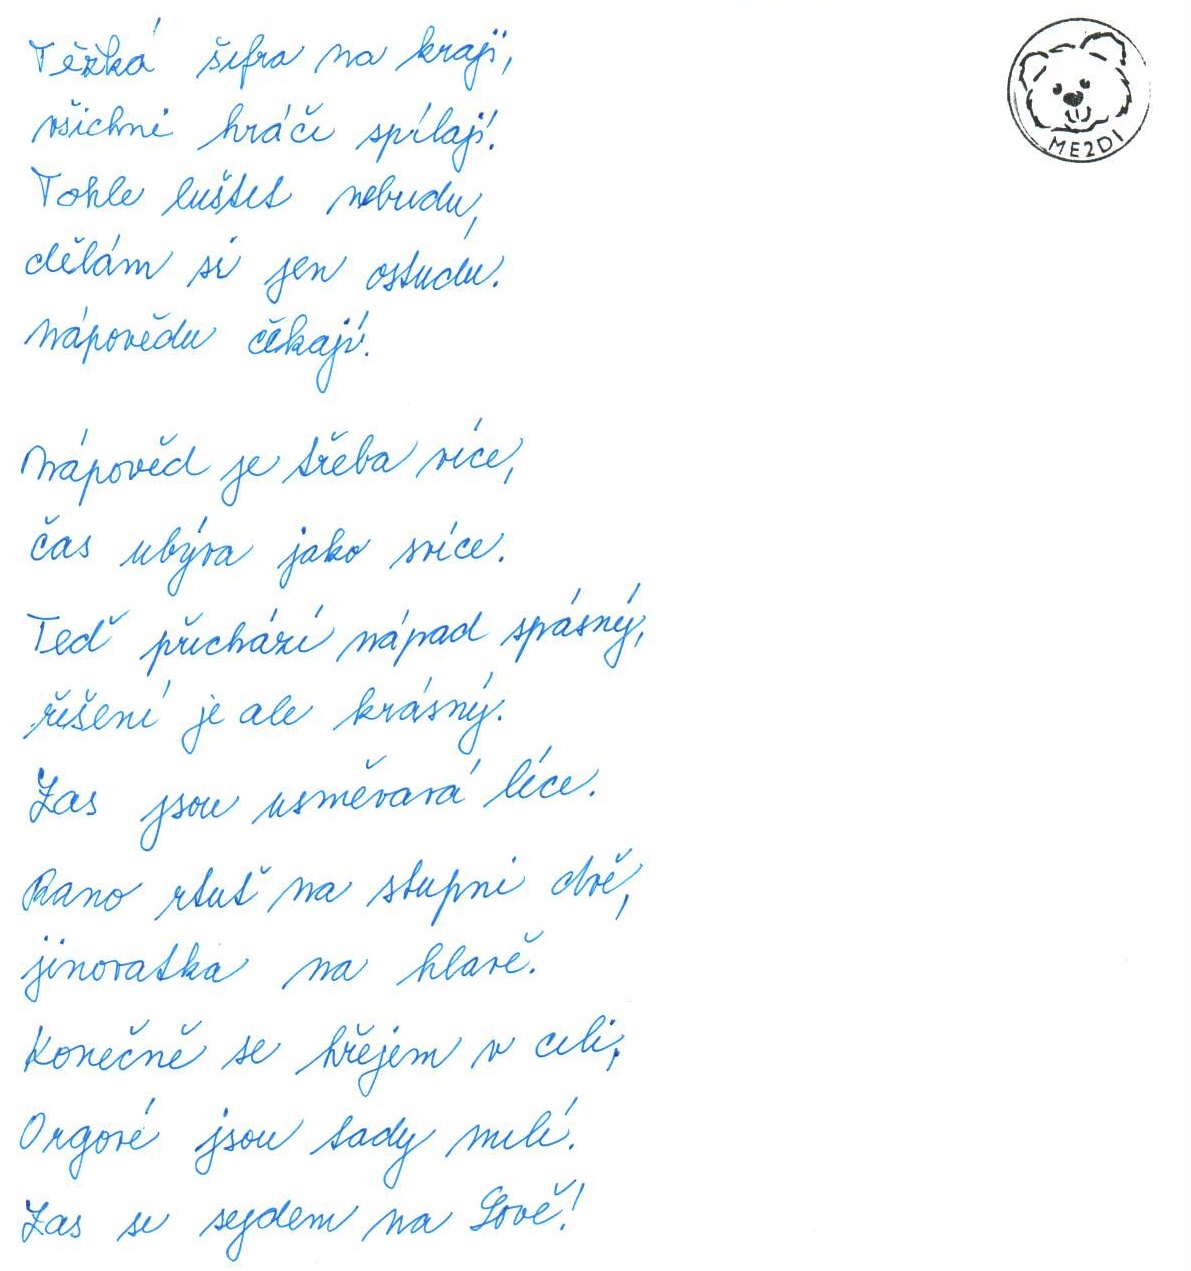 Těžká šifra na kraji,
všichni hráči spílají.
Tohle luštit nebudu,
dělám si jen ostudu.
Nápovědu čekají.
Nápověd je třeba více,
čas ubývá jako svíce.
Teď přichází nápad spásný,
řešení je ale krásný.
Zas jsou usměvavá líce.
Ráno rtuť na stupni dvě,
jinovatka na hlavě.
Konečně se hřejem v cíli,
Orgové jsou tady milí.
Zas se sejdem na Sově!
ME2DI